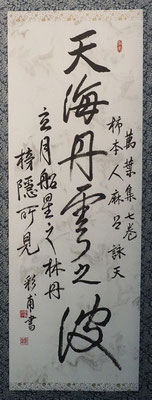 萬葉集七巻
柿本人麻呂詠天
天海丹雲之波
立月船星之林丹
榜隠所見
彩甫書